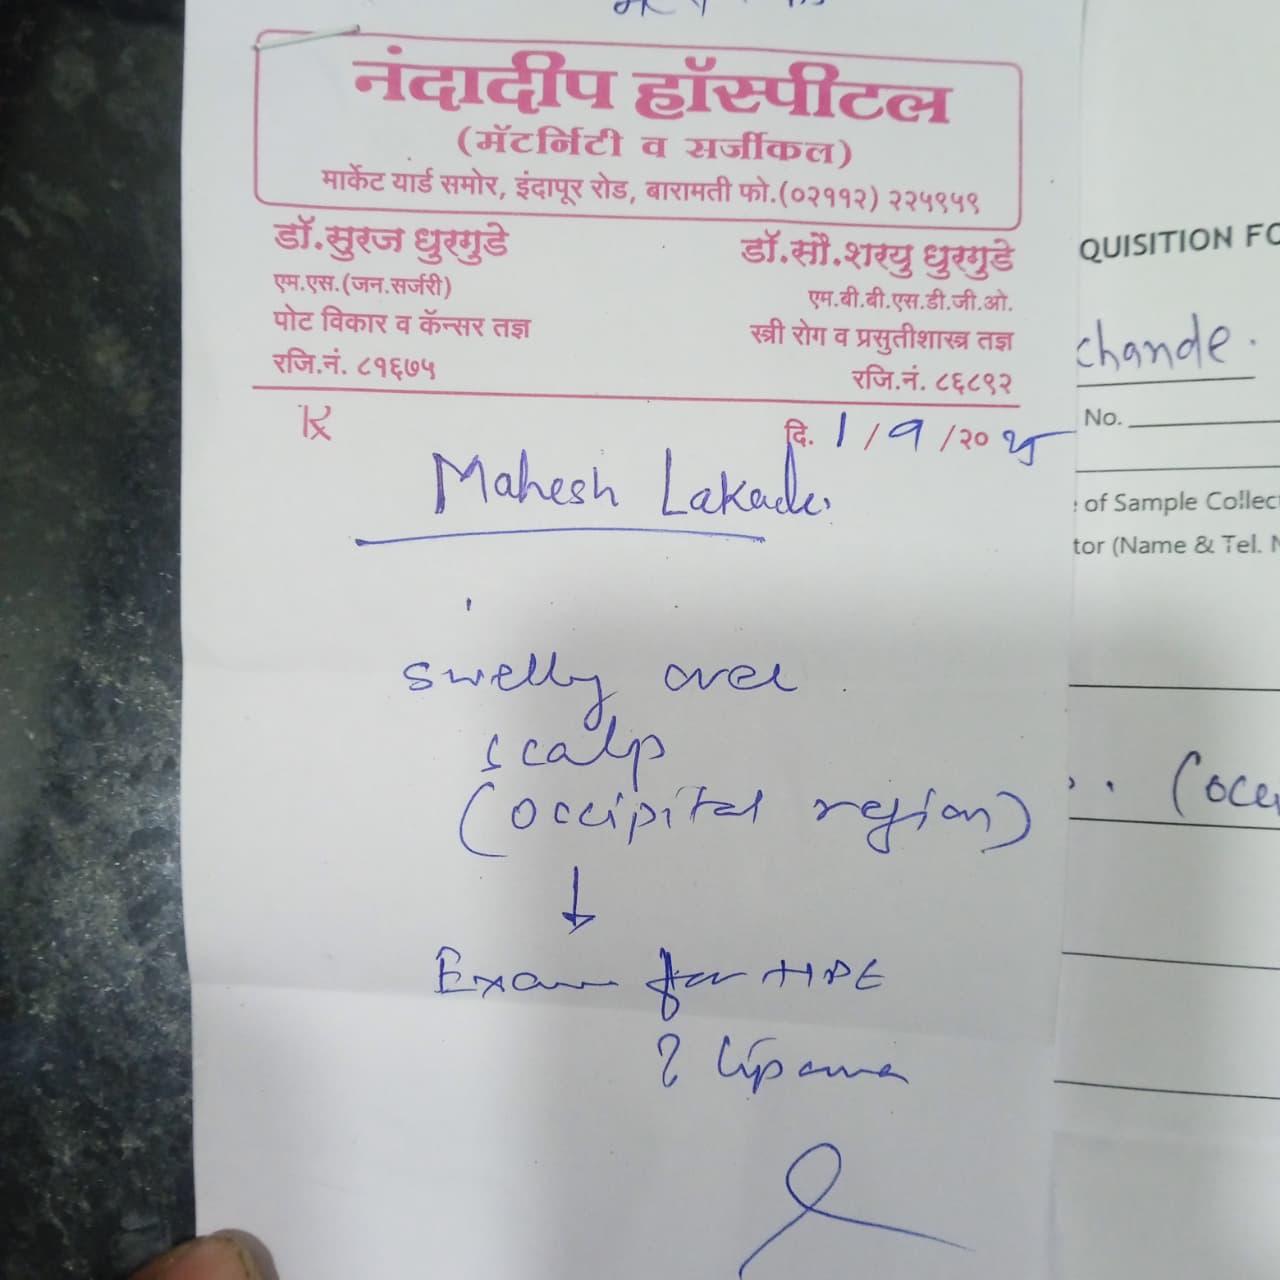 नंदादीप हॉस्पीटल
(मॅटर्निटी व सर्जीकल)
मार्केट यार्ड समोर, इंदापूर रोड, बारामती फो.(०२११२) २२५९५९
डॉ.सुरज धुरगुडे
एम.एस.(जन.सर्जरी)
पोट विकार व कॅन्सर तज्ञ
रजि.नं. ८१६७५
डॉ.सौ.शरयु धुरगुडे
एम.बी.बी.एस.डी.जी.ओ.
स्त्री रोग व प्रसुतीशास्त्र तज्ञ
रजि.नं. ८६८९२
Rx
दि. 1/9/२० २५
Mahesh Lakade
swelling over
scalp
(occipital region)
↓
for HPE
? lipoma
QUISITION FO
chande.
No.
of Sample Collec
tor (Name & Tel. N